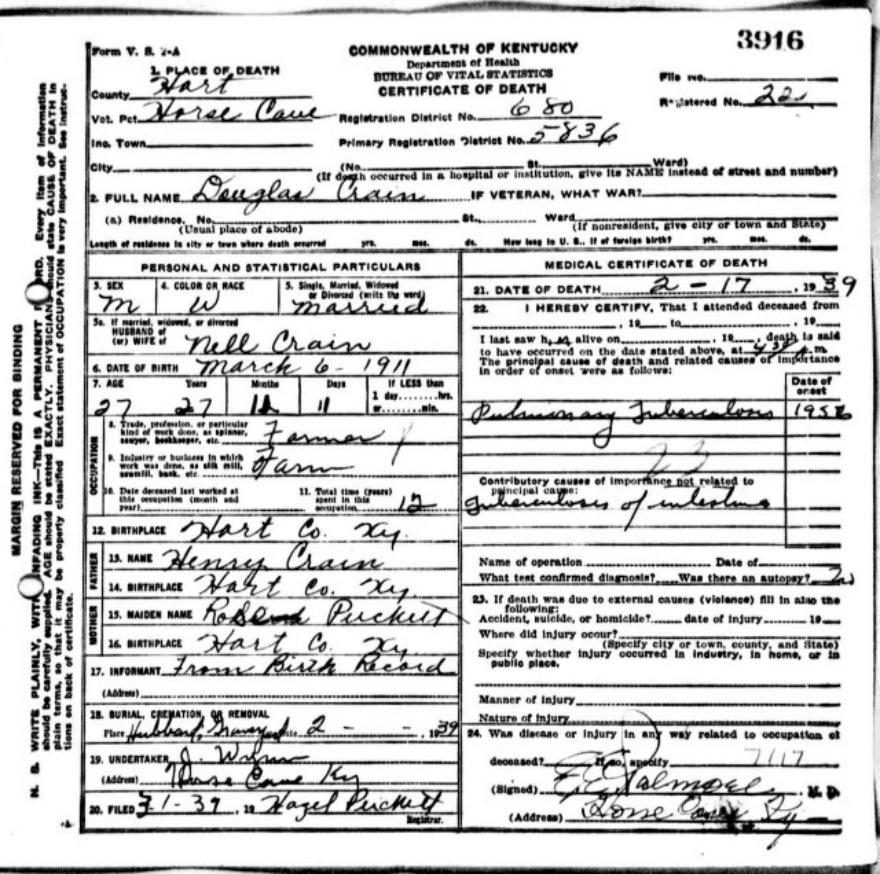 3916
Form V. S. 1-A
COMMONWEALTH OF KENTUCKY
Department of Health
BUREAU OF VITAL STATISTICS
CERTIFICATE OF DEATH
File No.
Registered No. 22
1. PLACE OF DEATH
County Hart
Vot. Pct. Horse Cave
Registration District No. 680
Inc. Town
Primary Registration District No. 5836
City (No. St. Ward)
(If death occurred in a hospital or institution, give its NAME instead of street and number)
2. FULL NAME Douglas Crain IF VETERAN, WHAT WAR?
(a) Residence. No. St., Ward
(Usual place of abode) (If nonresident, give city or town and State)
Length of residence in city or town where death occurred yrs. mos. ds. How long in U. S., if of foreign birth? yrs. mos. ds.
PERSONAL AND STATISTICAL PARTICULARS
3. SEX M
4. COLOR OR RACE W
5. Single, Married, Widowed
or Divorced (write the word)
Married
5a. If married, widowed, or divorced
HUSBAND of
(or) WIFE of Nell Crain
6. DATE OF BIRTH March 6 - 1911
7. AGE Years Months Days If LESS than
1 day hrs.
or min.
27 27 11 11
OCCUPATION
8. Trade, profession, or particular
kind of work done, as spinner,
sawyer, bookkeeper, etc. Farmer
9. Industry or business in which
work was done, as silk mill,
sawmill, bank, etc. Farm
10. Date deceased last worked at
this occupation (month and
year)
11. Total time (years)
spent in this
occupation 12
12. BIRTHPLACE Hart Co. Ky.
FATHER
13. NAME Henry Crain
14. BIRTHPLACE Hart Co. Ky.
MOTHER
15. MAIDEN NAME Puckett
16. BIRTHPLACE Hart Co. Ky
17. INFORMANT From Birth Record
(Address)
18. BURIAL, CREMATION, OR REMOVAL
Place Hubbard Graveyard Date 2 - - , 1939
19. UNDERTAKER J.
(Address) Horse Cave Ky
20. FILED 3-1-39, 19 Hazel Puckett
Registrar.
MEDICAL CERTIFICATE OF DEATH
21. DATE OF DEATH 2 - 17 , 1939
22. I HEREBY CERTIFY, That I attended deceased from
, 19 to , 19
I last saw him alive on , 19 , death is said
to have occurred on the date stated above, at p.m.
The principal cause of death and related causes of importance
in order of onset were as follows:
Date of
onset
Pulmonary Tuberculosis
23
Contributory causes of importance not related to
principal cause:
Tuberculosis of intestine
Name of operation Date of
What test confirmed diagnosis? Was there an autopsy? No
23. If death was due to external causes (violence) fill in also the
following:
Accident, suicide, or homicide? date of injury 19
Where did injury occur?
(Specify city or town, county, and State)
Specify whether injury occurred in industry, in home, or in
public place.
Manner of injury
Nature of injury
24. Was disease or injury in any way related to occupation of
deceased? If so, specify 7117
(Signed) E. E. Palmore, M. D.
(Address) Horse Cave, Ky
MARGIN RESERVED FOR BINDING
N. B. WRITE PLAINLY, WITH UNFADING INK—THIS IS A PERMANENT RECORD. Every item of information
should be carefully supplied. AGE should be stated EXACTLY. PHYSICIANS should state CAUSE OF DEATH in
plain terms, so that it may be properly classified. Exact statement of OCCUPATION is very important. See instruc-
tions on back of certificate.